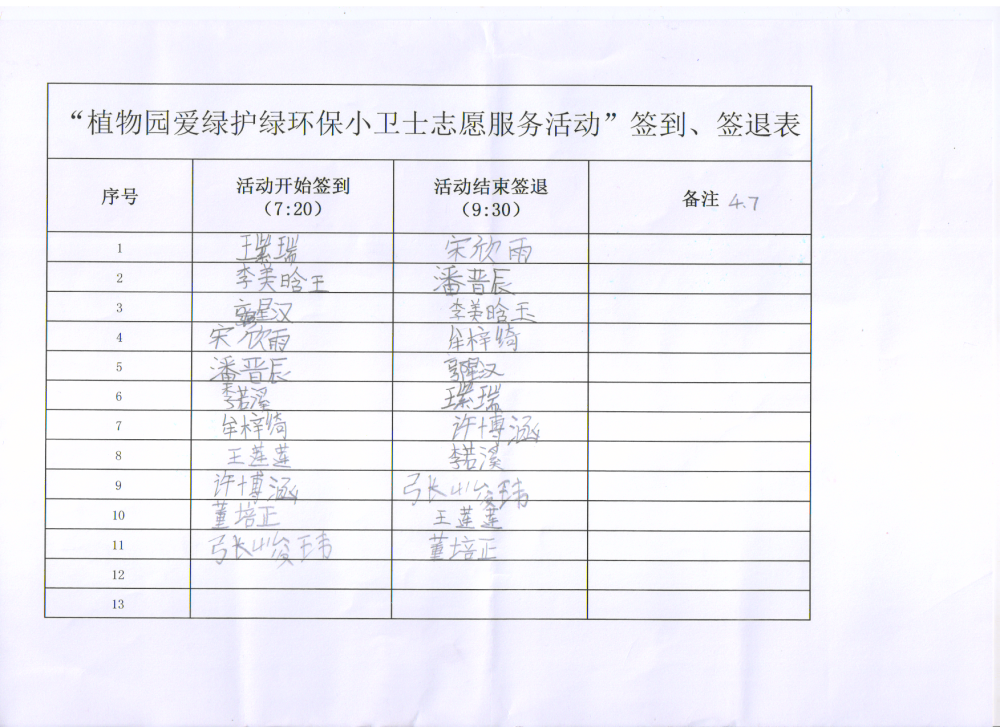 “植物园爱绿护绿环保小卫士志愿服务活动”签到、签退表
序号 活动开始签到（7:20） 活动结束签退（9:30） 备注 4.7
1 王紫瑞 宋欣雨
2 李美晗王 潘晋辰
3 星汉 李美晗玉
4 宋欣雨 牟梓绮
5 潘晋辰 星汉
6 李若溪 王紫瑞
7 牟梓绮 许博涵
8 王莲莲 李若溪
9 许博涵 张峻玮
10 董培正 王莲莲
11 张峻玮 董培正
12
13